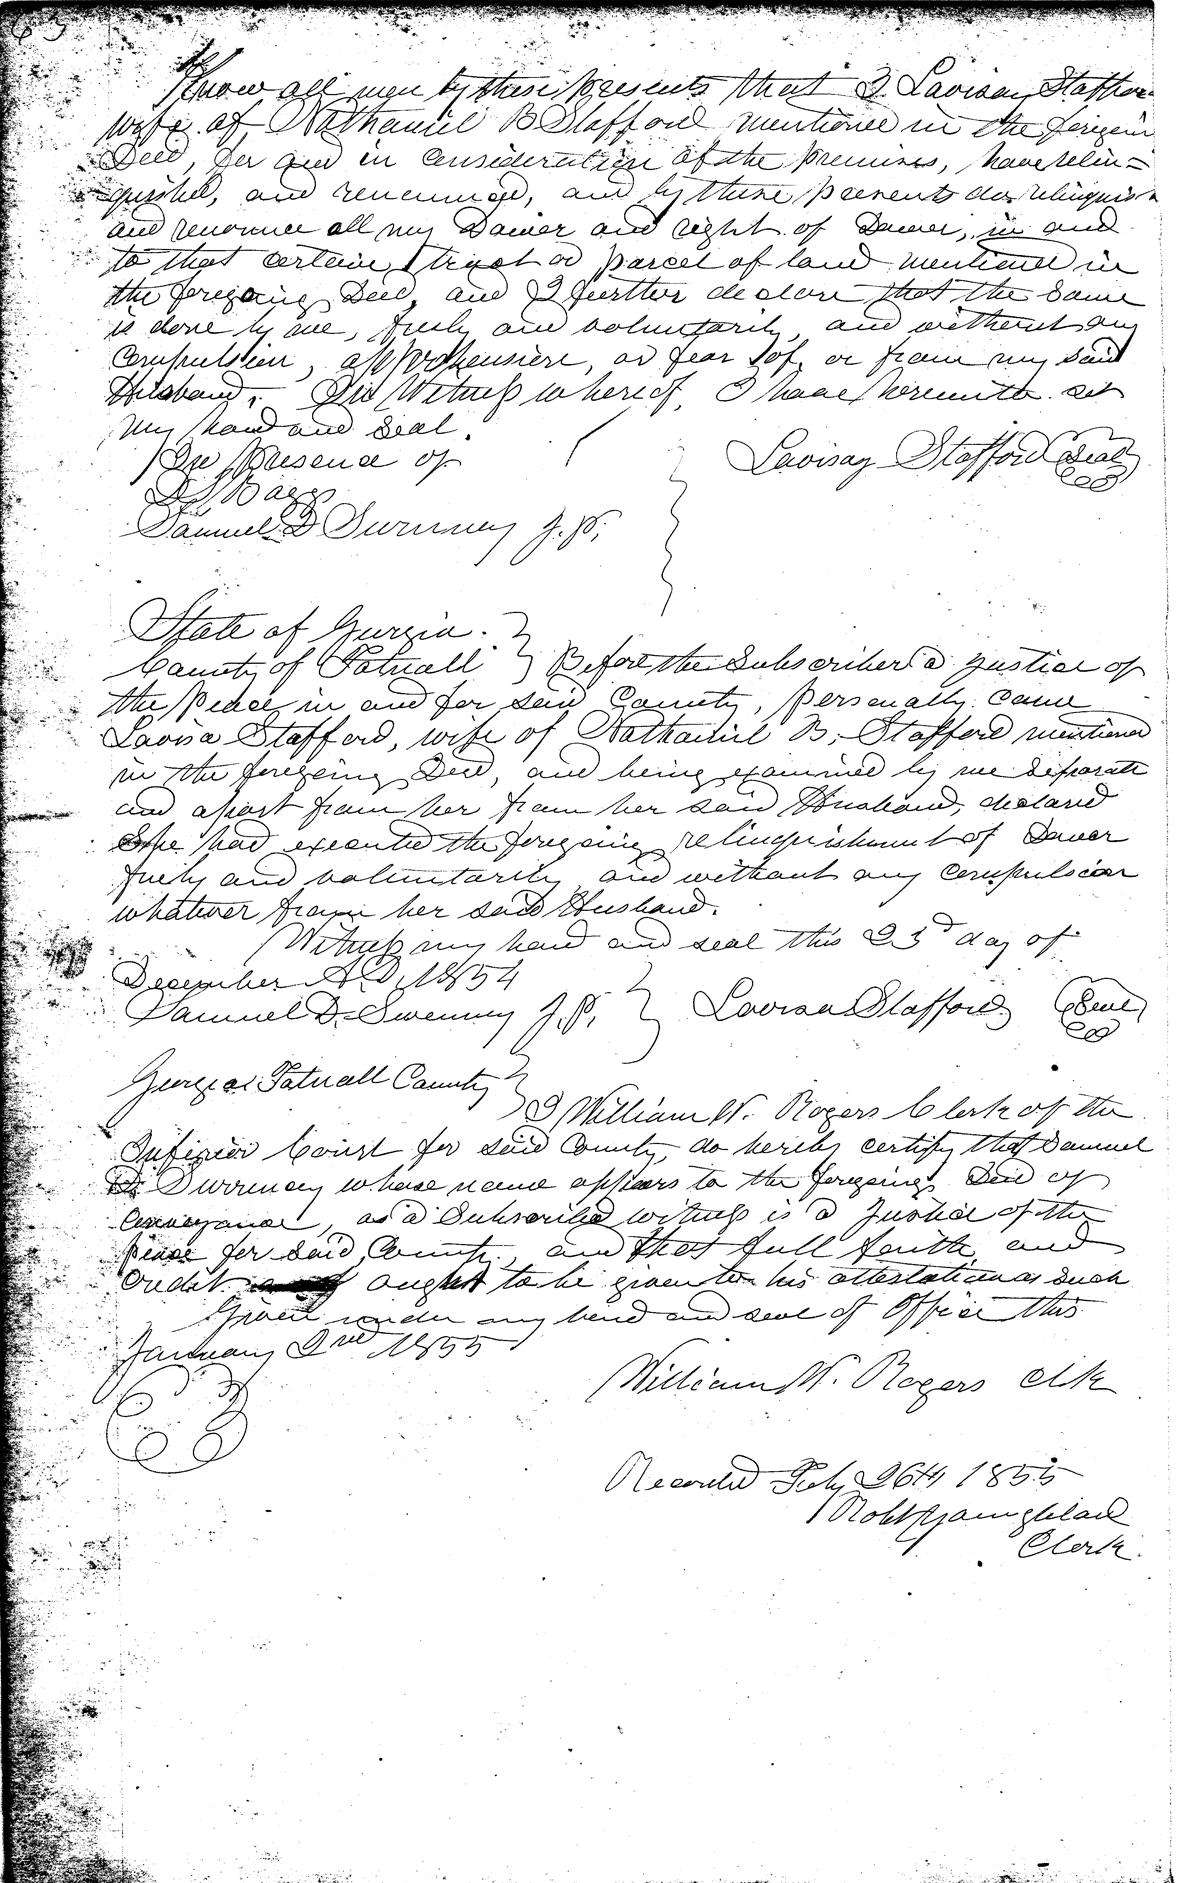 Know all men by these presents that I Lavisay Stafford
wife of Nathaniel B Stafford mentioned in the foregoing
Deed, for and in consideration of the premises, have relin=
quished, and renounced, and by these presents do relinquish
and renounce all my Dower and right of Dower, in and
to that certain tract or parcel of land mentioned in
the foregoing Deed, and I further declare that the same
is done by me, freely and voluntarily, and without any
compulsion, apprehension, or fear of, or from my said
Husband. In Witness whereof, I have hereunto set
my hand and seal.
In Presence of Lavisay Stafford Seal
Baggs
Samuel D Swenney J.P.
State of Georgia.
County of Tatnall Before the Subscriber a Justice of
the Peace in and for said County, personally came
Lavisa Stafford, wife of Nathaniel B. Stafford mentioned
in the foregoing Deed, and being examined by me separate
and apart from her from her said Husband, declared
She had executed the foregoing relinquishment of Dower
freely and voluntarily and without any compulsion
whatever from her said Husband.
Witness my hand and seal this 23d day of
December A.D. 1854
Samuel D. Swenney J.P. Lavisa Stafford Seal
Georgia Tatnall County
I William W. Rogers Clerk of the
Inferior Court for said County, do hereby certify that Samuel
D. Swenney whose name appears to the foregoing Deed of
Conveyance, as a Subscribed witness is a Justice of the
peace for said County, and that full faith and
credit ought to be given to his attestation as such
Given under my hand and seal of Office this
January 2nd 1855
William W. Rogers Clk
Recorded 26th 1855
Robt Youngblood
Clerk.